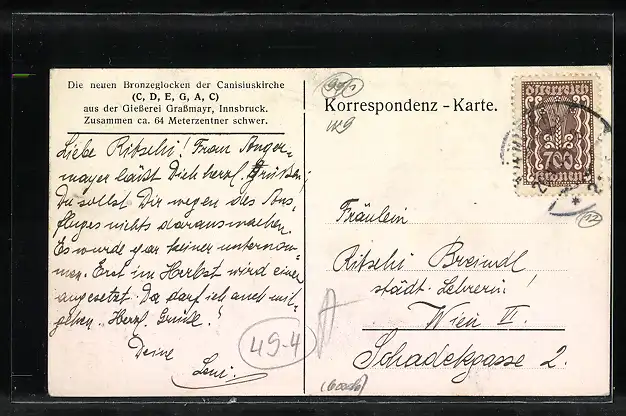 Die neuen Bronzeglocken der Canisiuskirche
(C, D, E, G, A, C)
aus der Gießerei Graßmayr, Innsbruck.
Zusammen ca. 64 Meterzentner schwer.
Liebe Ritschi! Frau Anger-
mayer läßt Dich herzl. Grüßen!
Du sollst Dir wegen des Aus-
fluges nichts daraus machen.
Es wurde gar keiner unternom-
men. Erst im Herbst wird einer
angesetzt. Da darf ich auch mit-
gehen. Herzl. Grüße!
Deine
Leni
49-4
Korrespondenz - Karte.
Österreich
700
Kronen
Fräulein
Ritschi Breindl
städt. Lehrerin!
Wien VI.
Schadekgasse 2.